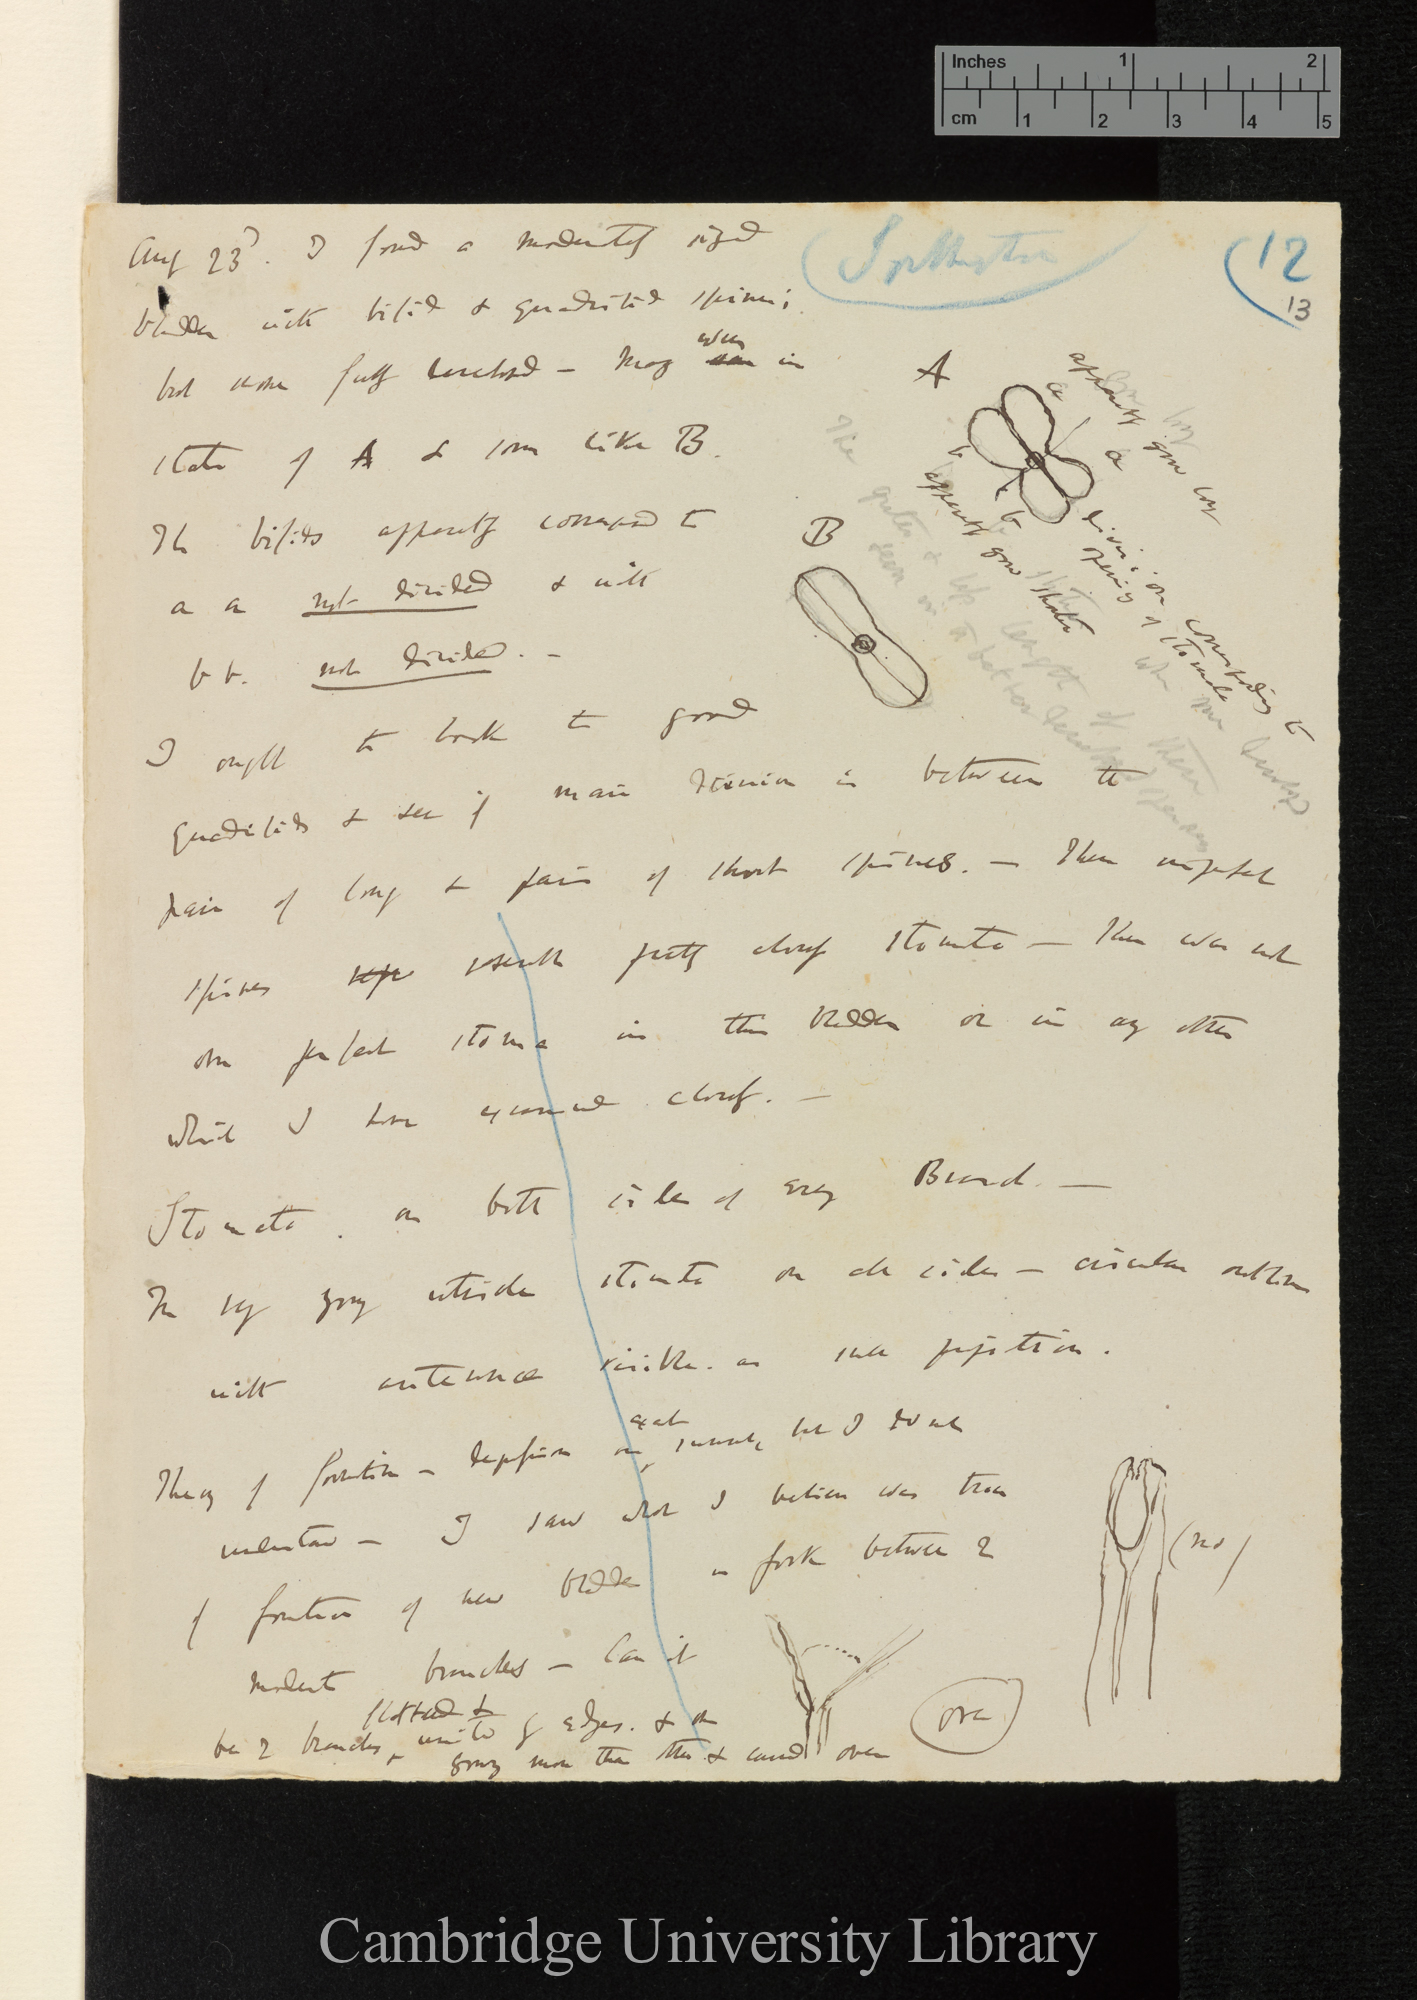 Inches 1 2
cm 1 2 3 4 5
12
13
Aug 23d. I found a moderately sized
bladder with bifid & quadrifid spines;
but none fully developed — Many were in
state of A & some like B.
The bifids apparently correspond to
a a not divided & with
b b. not divided. —
I ought to look to good
quadrifids & see if main division is between the
pair of long & pair of short spines. — These imperfect
spines resemble pretty closely stomata — There was not
one perfect stoma in this bladder or in any other
which I have examined closely. —
Stomata. on both sides of every Branch. —
In very young utricle stomata on all sides — circular outline
with entrance visible. as small projection.
Theory of formation — depression on exact summit, but I do not
understand — I saw what I believe was trace
of formation of new bladder in fork between 2
branches — Can it
be 2 branches flattened & unite by edges. & one
grows more than other & curved over
A
apparently grow long
a
a
b
b
apparently grow shorter
division corresponding to
opening of stomata
B
The
length of these
when more developed
seen in a better developed specimen
(no)
over
Cambridge University Library